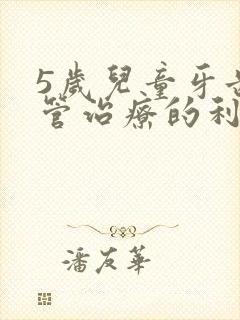 5歲兒童牙
管治療的利
潘友華